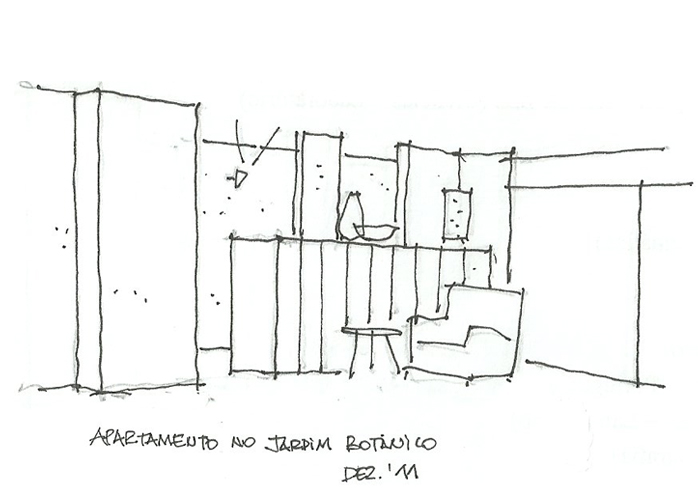 APARTAMENTO NO JARDIM BOTÂNICO
DEZ. '11